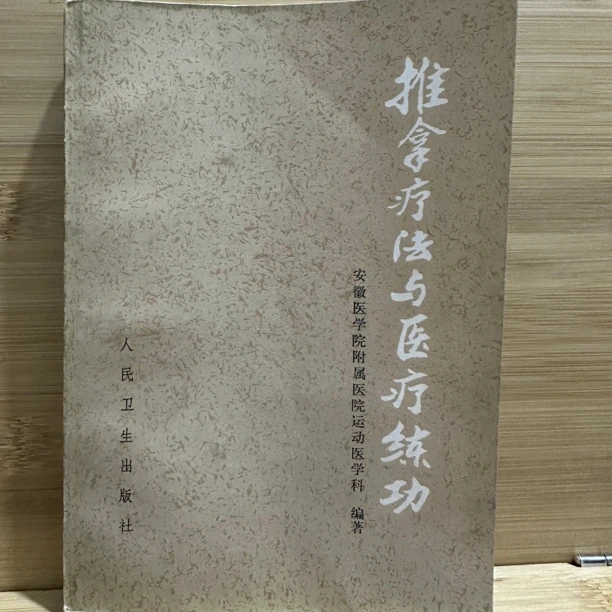 推拿疗法与医疗练功
安徽医学院附属医院运动医学科 编著
人民卫生出版社